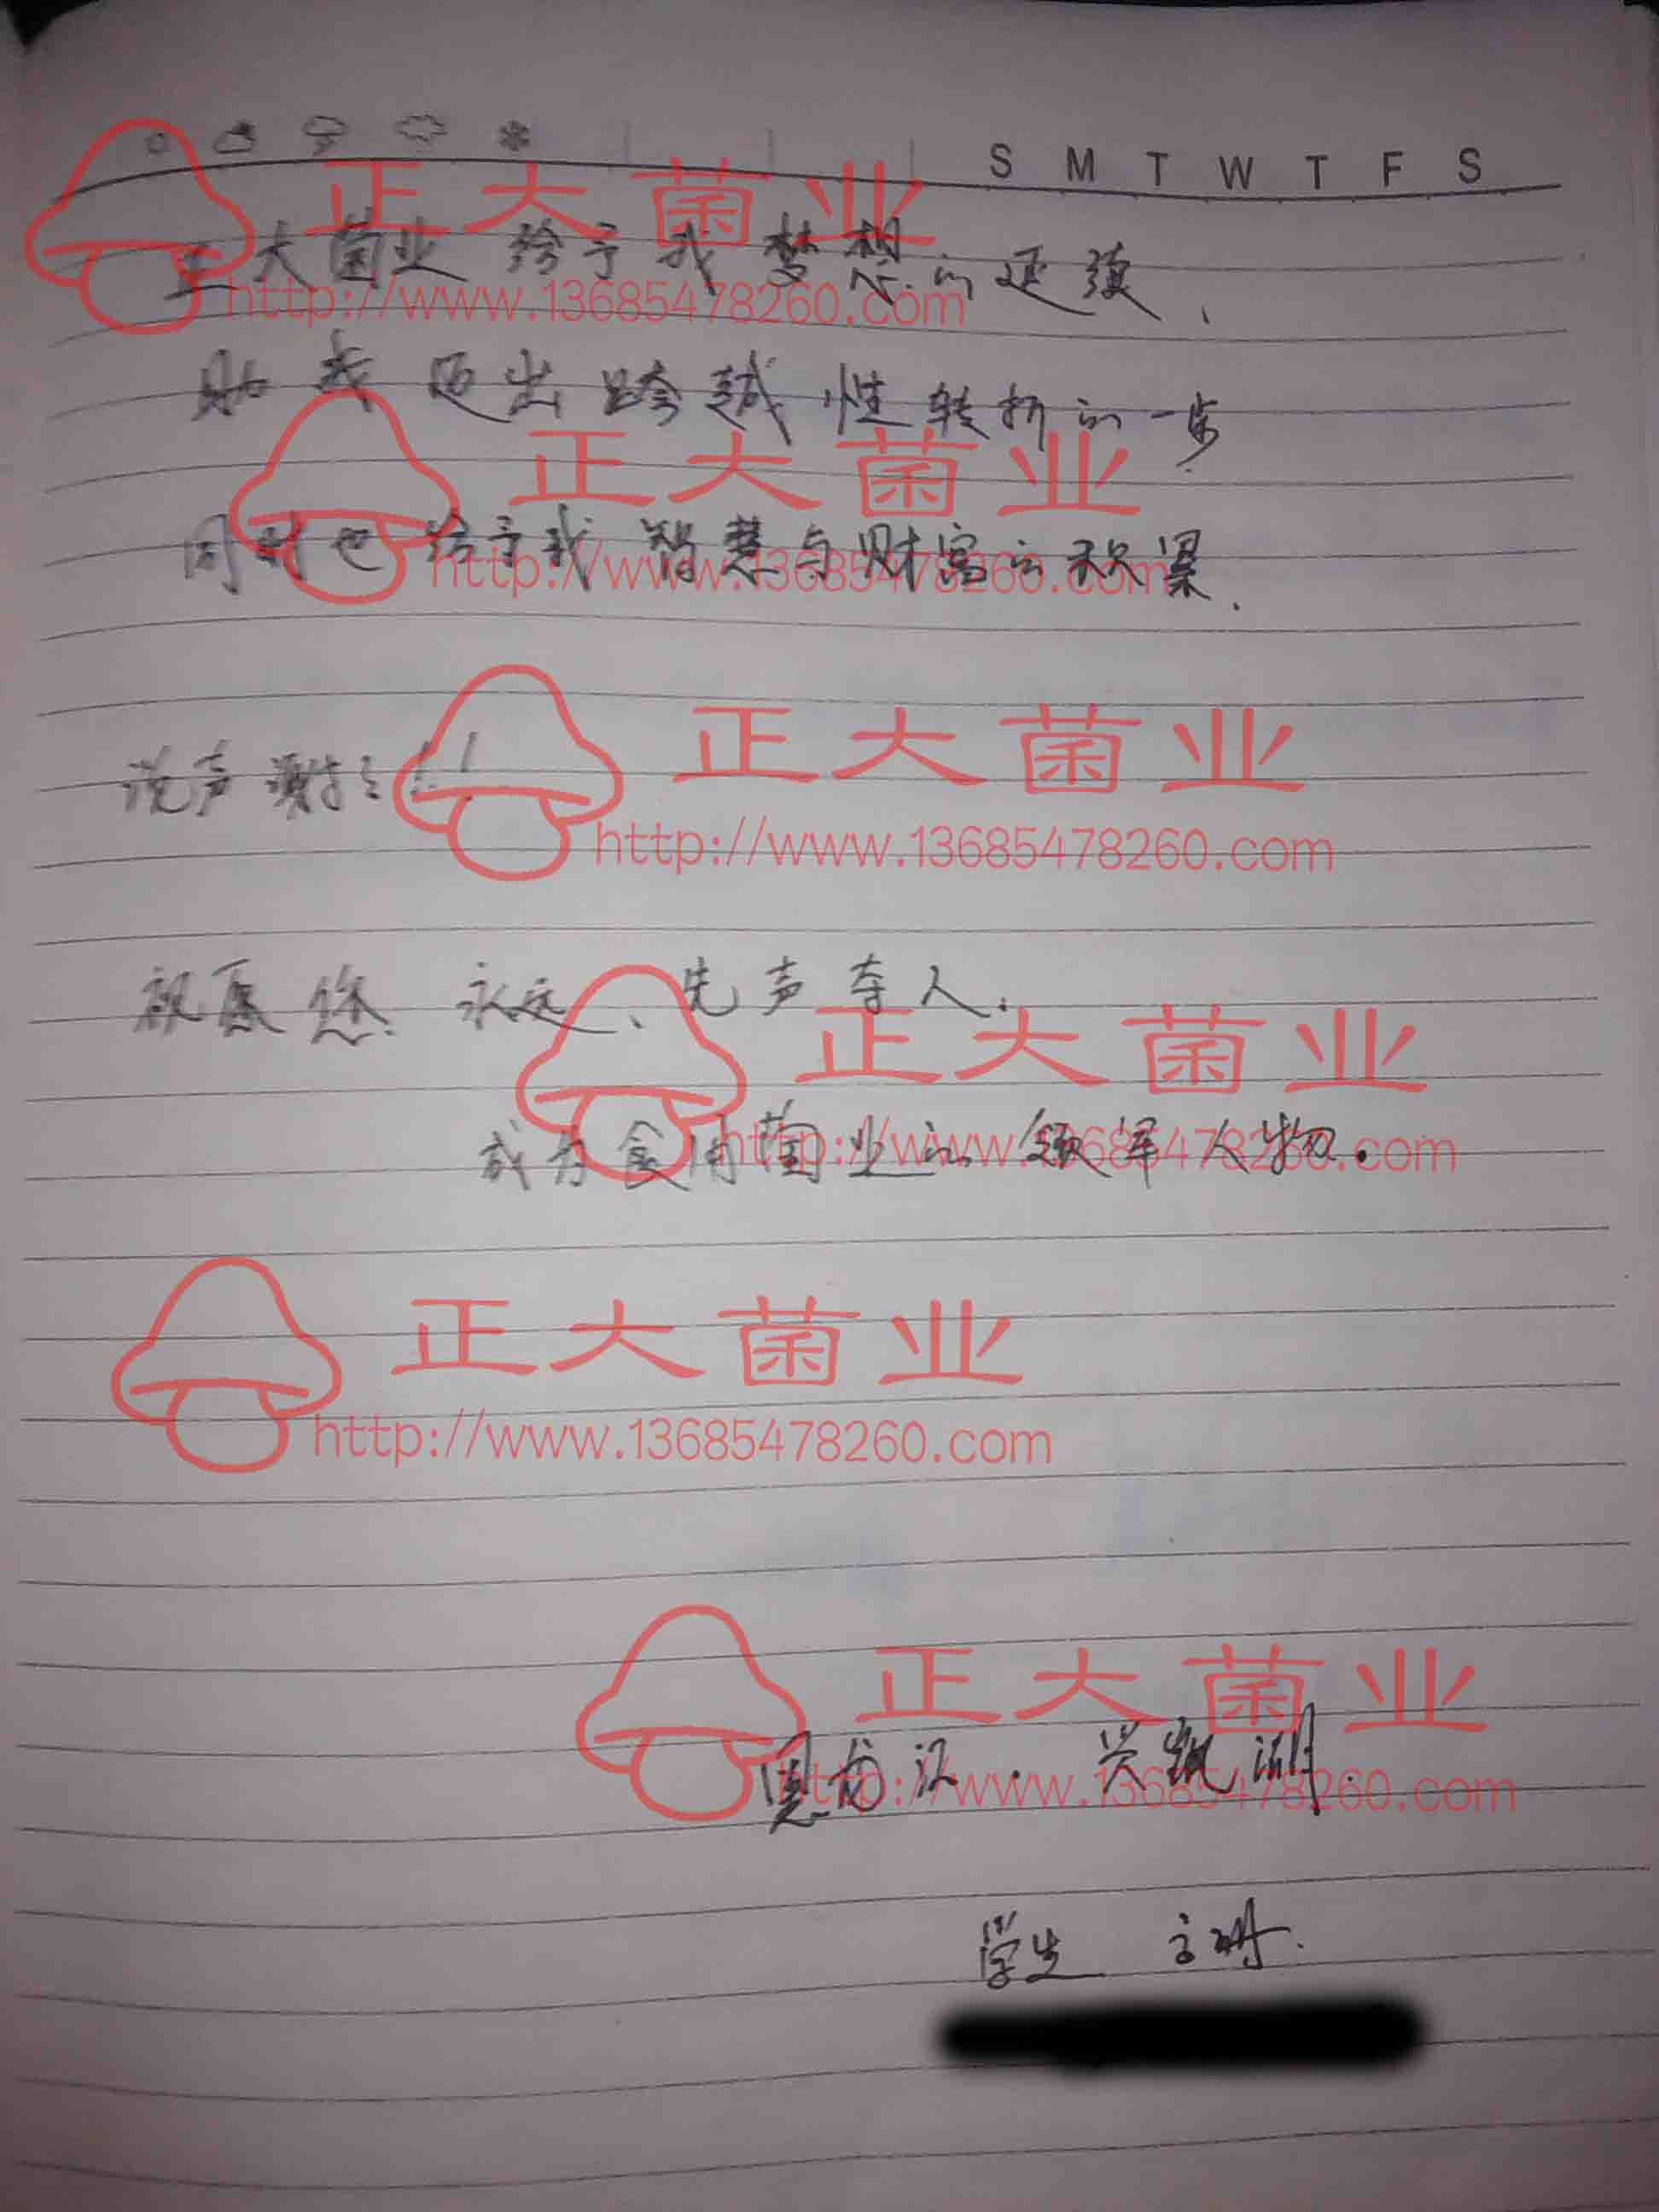 S M T W T F S
正大菌业
正大菌业 给予我梦想的延续、
http://www.13685478260.com
助我迈出跨越性转折的一步
正大菌业
同时也给予我智慧与财富的积累.
http://www.13685478260.com
正大菌业
说声谢谢!!!
http://www.13685478260.com
祝愿您 永远、先声夺人.
正大菌业
成为食用菌业的领军人物.
http://www.13685478260.com
正大菌业
http://www.13685478260.com
正大菌业
http://www.13685478260.com
学生